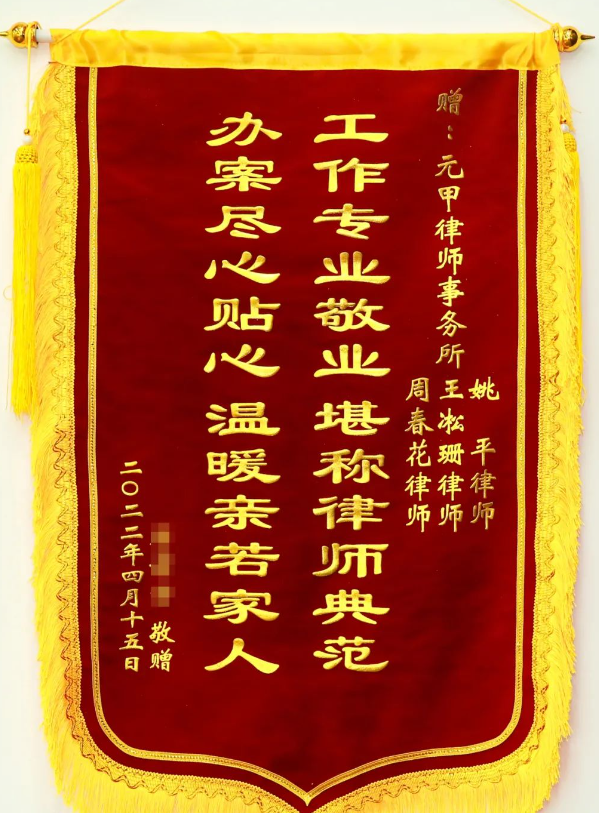 赠：元甲律师事务所
姚平律师
王凇珊律师
周春花律师
工作专业敬业堪称律师典范
办案尽心贴心温暖亲若家人
敬赠
二〇二二年四月十五日